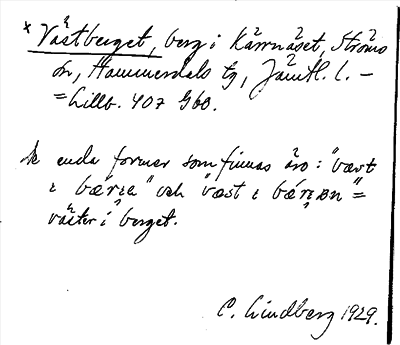 * Västberget, berg i Kärrnäset, Ströms
sn, Hammerdals tg, Jämtl. l. –
= Lillb. 407 Gbd.
De enda former som finnas äro: "væst
i bærɪa" och "væst i bærɪɛn" =
väster i berget.
C. Lindberg 1929.